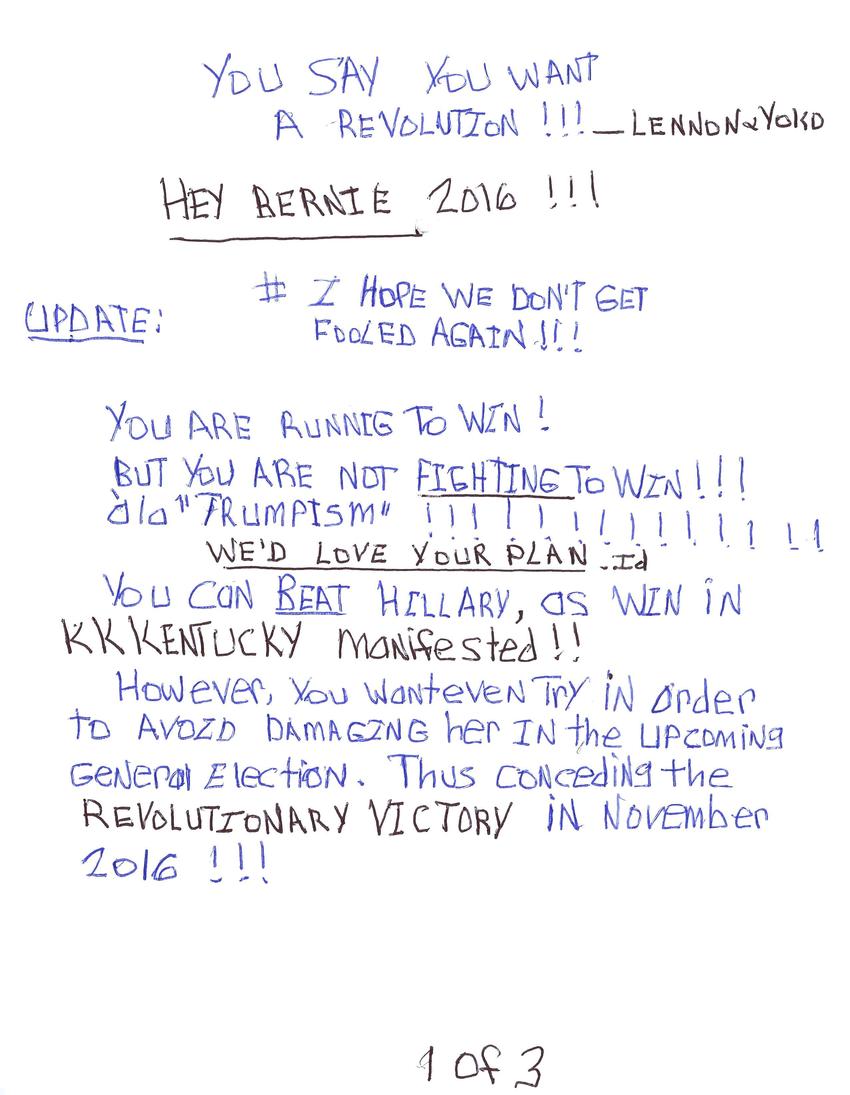 YOU SAY YOU WANT
A REVOLUTION !!! — LENNON & YOKO
HEY BERNIE 2016 !!!
# I HOPE WE DON'T GET
UPDATE:
FOOLED AGAIN!!!
YOU ARE RUNNIG TO WIN !
BUT YOU ARE NOT FIGHTING TO WIN!!!
àla "TRUMPISM" !!!!!!!!!!!!!!
WE'D LOVE YOUR PLAN ..Id
YOU CAN BEAT HILLARY, as WIN iN
KKKENTUCKY manifested!!
However, You wanteven Try iN order
to AVOID DAMAGING her IN the UPCOMiNg
GeNeral Election. Thus CONCeding the
REVOLUTIONARY VICTORY iN November
2016 !!!
1 of 3